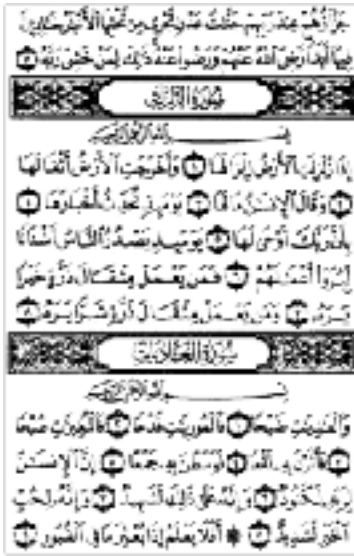 جَزَآؤُهُمْ عِندَ رَبِّهِمْ جَنَّٰتُ عَدْنٍ تَجْرِى مِن تَحْتِهَا ٱلْأَنْهَٰرُ خَٰلِدِينَ
فِيهَآ أَبَدًا رَّضِىَ ٱللَّهُ عَنْهُمْ وَرَضُوا۟ عَنْهُ ذَٰلِكَ لِمَنْ خَشِىَ رَبَّهُۥ ٨
سُورَةُ الزَّلْزَلَةِ
بِسْمِ ٱللَّهِ ٱلرَّحْمَٰنِ ٱلرَّحِيمِ
إِذَا زُلْزِلَتِ ٱلْأَرْضُ زِلْزَالَهَا ١ وَأَخْرَجَتِ ٱلْأَرْضُ أَثْقَالَهَا
٢ وَقَالَ ٱلْإِنسَٰنُ مَا لَهَا ٣ يَوْمَئِذٍ تُحَدِّثُ أَخْبَارَهَا ٤
بِأَنَّ رَبَّكَ أَوْحَىٰ لَهَا ٥ يَوْمَئِذٍ يَصْدُرُ ٱلنَّاسُ أَشْتَاتًا
لِّيُرَوْا۟ أَعْمَٰلَهُمْ ٦ فَمَن يَعْمَلْ مِثْقَالَ ذَرَّةٍ خَيْرًا
يَرَهُۥ ٧ وَمَن يَعْمَلْ مِثْقَالَ ذَرَّةٍ شَرًّا يَرَهُۥ ٨
سُورَةُ الْعَادِيَاتِ
بِسْمِ ٱللَّهِ ٱلرَّحْمَٰنِ ٱلرَّحِيمِ
وَٱلْعَٰدِيَٰتِ ضَبْحًا ١ فَٱلْمُورِيَٰتِ قَدْحًا ٢ فَٱلْمُغِيرَٰتِ صُبْحًا
٣ فَأَثَرْنَ بِهِۦ نَقْعًا ٤ فَوَسَطْنَ بِهِۦ جَمْعًا ٥ إِنَّ ٱلْإِنسَٰنَ
لِرَبِّهِۦ لَكَنُودٌ ٦ وَإِنَّهُۥ عَلَىٰ ذَٰلِكَ لَشَهِيدٌ ٧ وَإِنَّهُۥ لِحُبِّ
ٱلْخَيْرِ لَشَدِيدٌ ٨ ۞ أَفَلَا يَعْلَمُ إِذَا بُعْثِرَ مَا فِى ٱلْقُبُورِ ٩